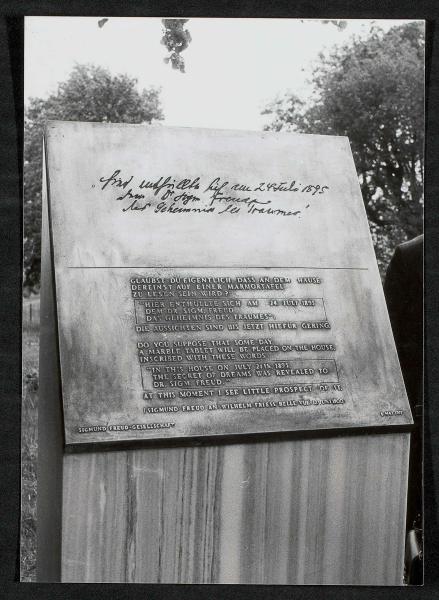 „Hier enthüllte sich am 24 Juli 1895
dem Dr Sigm Freud
das Geheimnis des Traumes“
GLAUBST DU EIGENTLICH DASS AN DEM HAUSE
DEREINST AUF EINER MARMORTAFEL
ZU LESEN SEIN WIRD?
„HIER ENTHÜLLTE SICH AM 24. JULI 1895
DEM DR. SIGM. FREUD
DAS GEHEIMNIS DES TRAUMES“
DIE AUSSICHTEN SIND BIS JETZT HIEFÜR GERING.
DO YOU SUPPOSE THAT SOME DAY
A MARBLE TABLET WILL BE PLACED ON THE HOUSE,
INSCRIBED WITH THESE WORDS
"IN THIS HOUSE ON JULY 24TH 1895
THE SECRET OF DREAMS WAS REVEALED TO
DR. SIGM. FREUD"
AT THIS MOMENT I SEE LITTLE PROSPECT OF IT.
(SIGMUND FREUD AN WILHELM FLIESS, BELLEVUE 12. JUNI 1900)
SIGMUND FREUD-GESELLSCHAFT